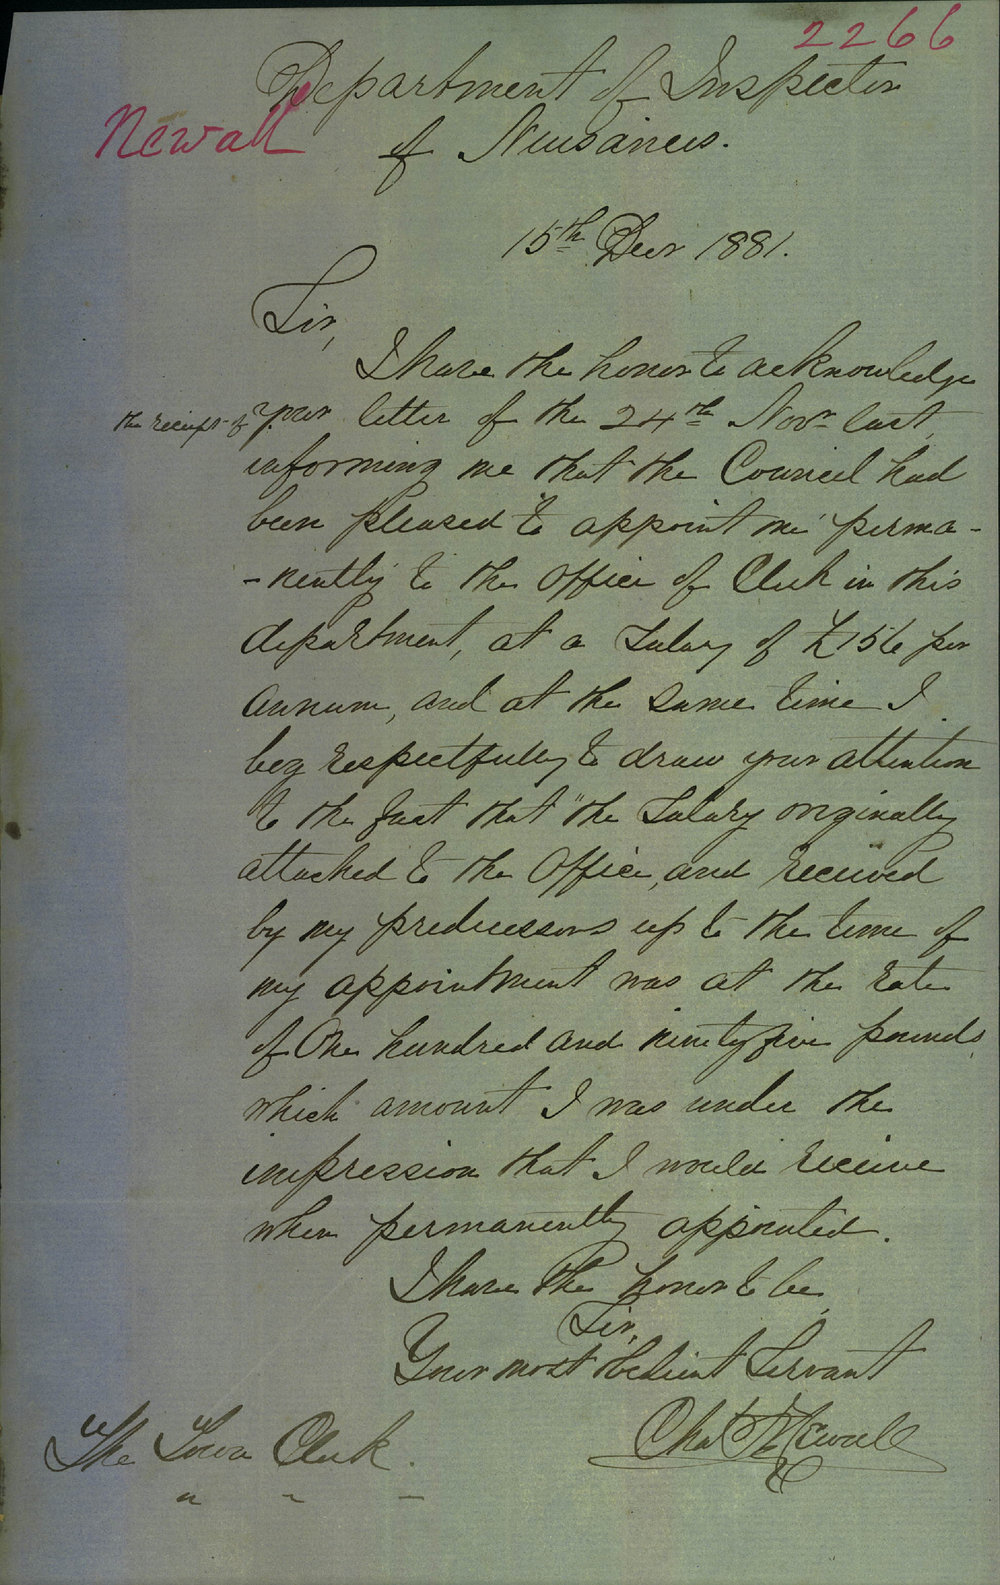 2266
Department of Inspector
Newall
of Nuisances.
15th Decr 1881.
Sir,
I have the honor to acknowledge
the receipt of your letter of the 24th Novr last,
informing me that the Council had
been pleased "to appoint me perma-
-nently to the Office of Clerk in this
department, at a Salary of £156 per
annum, and at the same time I
beg respectfully to draw your attention
to the fact that "the Salary originally
attached to the Office, and received
by my predecessors up to the time of
my appointment was at the rate
of One hundred and ninety five pounds,
which amount I was under the
impression that I would receive
when permanently appointed.
I have the honor to be,
Sir,
Your most obedient Servant
Newall
The Town Clerk.
" " "